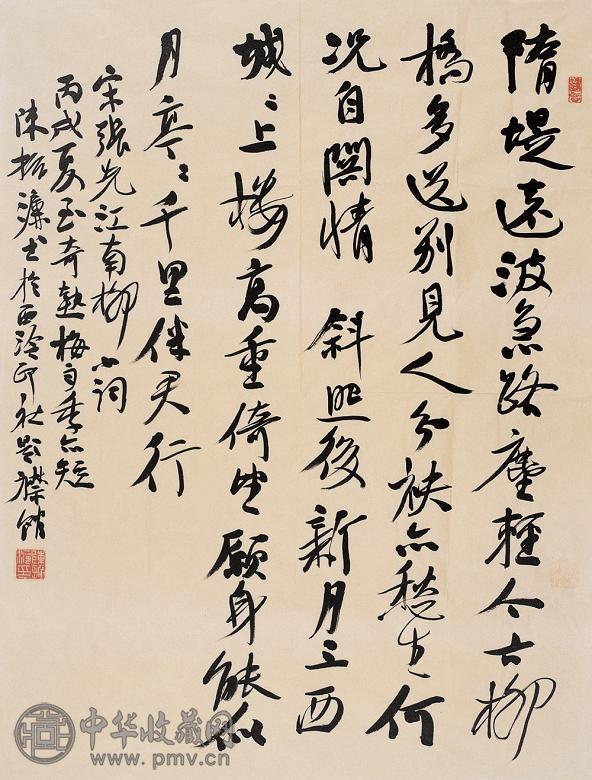 隋堤遠波急路塵輕今古柳
橋多送别見人分袂亦愁生何
况自関情 斜照後新月上西
城〻上楼高重倚望願身能似
月亭〻千里伴君行
宋張先江南柳小詞
丙戌夏至奇熱梅雨季亦短
陳振濂書於西泠印社
中华收藏网
www.pmv.cn